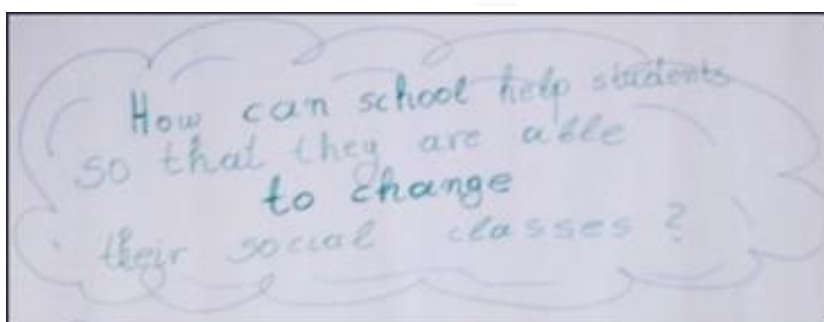 How can school help students
so that they are able
to change
their social classes?